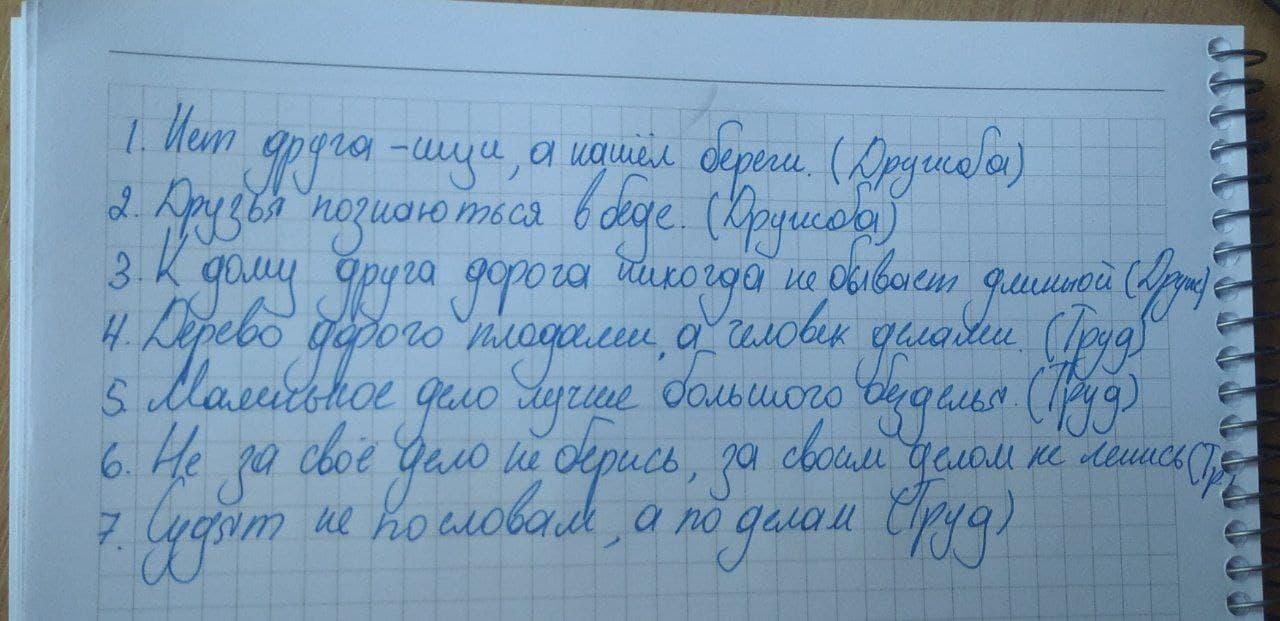 1. Нет друга - ищи, а нашёл береги. (Дружба)
2. Друзья познаються в беде. (Дружба)
3. К дому друга дорога никогда не бывает длинной (Друж)
4. Дерево дорого плодами, а человек делами. (Труд)
5. Маленькое дело лучше большого безделья. (Труд)
6. Не за своё дело не берись, за своим делом не ленись (Тр.)
7. Судят не по словам, а по делам (Труд)